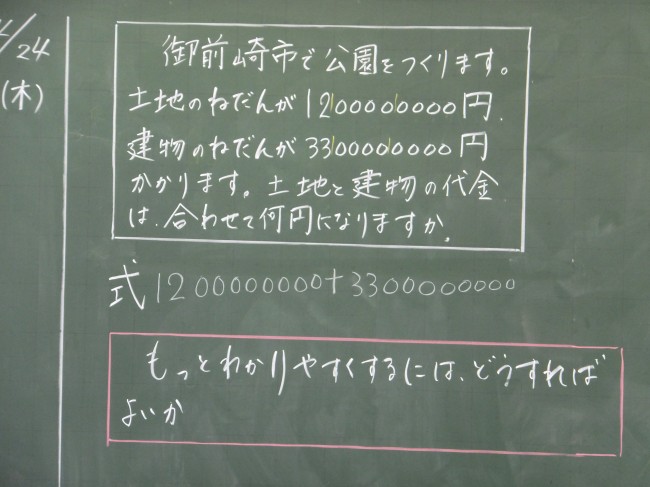 4/24
(木)
御前崎市で公園をつくります。
土地のねだんが1200000000円、
建物のねだんが3300000000円
かかります。土地と建物の代金
は、合わせて何円になりますか。
式1200000000+3300000000
もっとわかりやすくするには、どうすれば
よいか